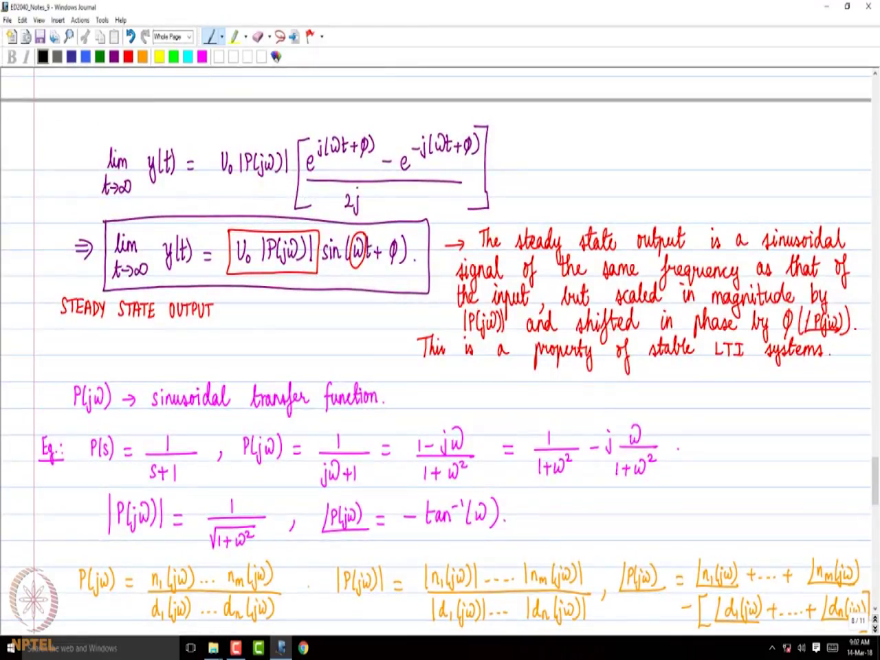 ED2040_Notes_9 - Windows Journal
File Edit View Insert Actions Tools Help
Whole Page
B I
lim t→∞ y(t) = U₀ |P(jω)| [ (e^{j(ωt+φ)} − e^{−j(ωt+φ)}) / 2j ]
⇒ lim t→∞ y(t) = U₀ |P(jω)| sin(ωt + φ).
STEADY STATE OUTPUT
→ The steady state output is a sinusoidal
signal of the same frequency as that of
the input, but scaled in magnitude by
|P(jω)| and shifted in phase by φ (∠P(jω)).
This is a property of stable LTI systems.
P(jω) → sinusoidal transfer function.
Eg.: P(s) = 1/(s+1) , P(jω) = 1/(jω+1) = (1−jω)/(1+ω²) = 1/(1+ω²) − j ω/(1+ω²) .
|P(jω)| = 1/√(1+ω²) , ∠P(jω) = − tan⁻¹(ω).
P(jω) = n₁(jω) ... nₘ(jω) / d₁(jω) ... dₙ(jω) . |P(jω)| = |n₁(jω)| .... |nₘ(jω)| / |d₁(jω)| ... |dₙ(jω)| , ∠P(jω) = ∠n₁(jω) + ... + ∠nₘ(jω)
− [∠d₁(jω) + .... + ∠dₙ(jω)]
8 / 11
NPTEL
Search the web and Windows
9:02 AM
14-Mar-18